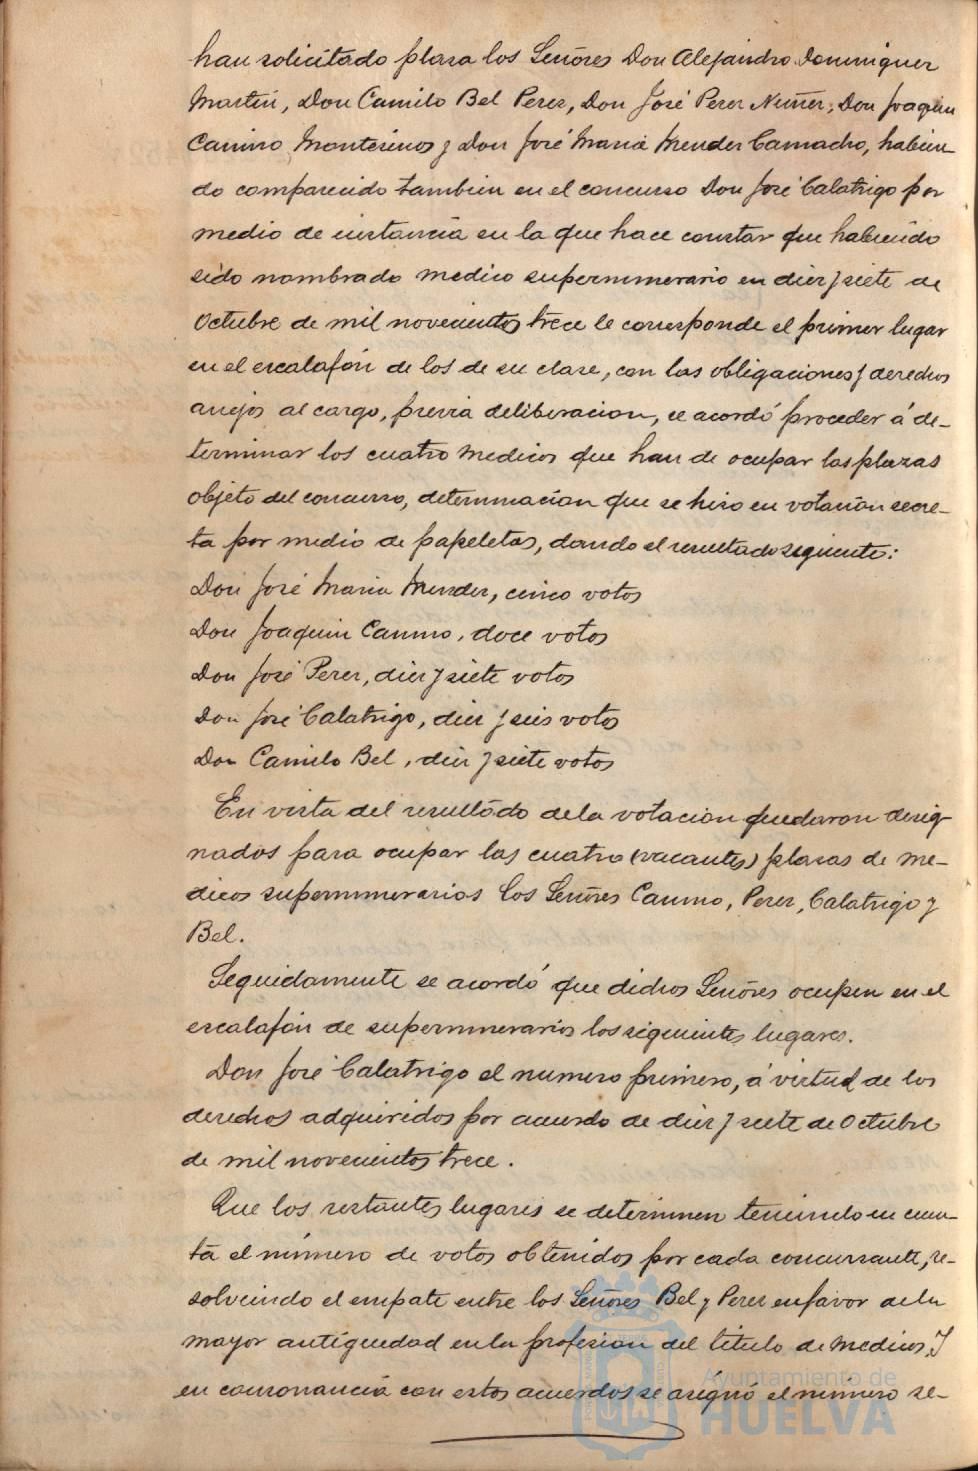 han solicitado plaza los Señores Don Alejandro Dominguez
Martin, Don Camilo Bel Perez, Don José Perez Nuñez, Don Joaquin
Camino Montesinos y Don José Maria Mendez Camacho, habien-
do comparecido tambien en el concurso Don José Calatrigo por
medio de instancia en la que hace constar que habiendo
sido nombrado medico supernumerario en diez y siete de
Octubre de mil novecientos trece le corresponde el primer lugar
en el escalafón de los de su clase, con las obligaciones y derechos
anejos al cargo, previa deliberacion, se acordó proceder á de-
terminar los cuatro medicos que han de ocupar las plazas
objeto del concurso, determinacion que se hizo en votación secre-
ta por medio de papeletas, dando el resultado siguiente:
Don José Maria Mendez, cinco votos
Don Joaquin Camino, doce votos
Don José Perez, diez y siete votos
Don José Calatrigo, diez y seis votos
Don Camilo Bel, diez y siete votos
En vista del resultado de la votacion quedaron desig-
nados para ocupar las cuatro (vacantes) plazas de me-
dicos supernumerarios los Señores Camino, Perez, Calatrigo y
Bel.
Seguidamente se acordó que dichos Señores ocupen en el
escalafón de supernumerarios los siguientes lugares.
Don José Calatrigo el numero primero, á virtud de los
derechos adquiridos por acuerdo de diez y siete de Octubre
de mil novecientos trece.
Que los restantes lugares se determinen teniendo en cuen-
ta el número de votos obtenidos por cada concursante, re-
solviendo el empate entre los Señores Bel y Perez en favor de la
mayor antigüedad en la profesion del titulo de medicos, y
en consonancia con estos acuerdos se asignó el número se-
Ayuntamiento de
HUELVA